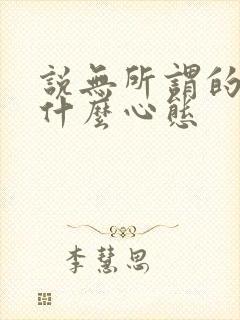 說無所謂的
什麼心態
李慧思